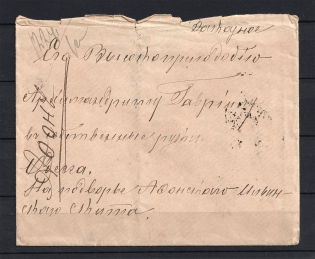 Заказное
Его Высокопреподобію
Архимандриту Гавріилу
въ собственныя руки
Одесса.
На подворье Афонскаго Ильин-
скаго Скита.